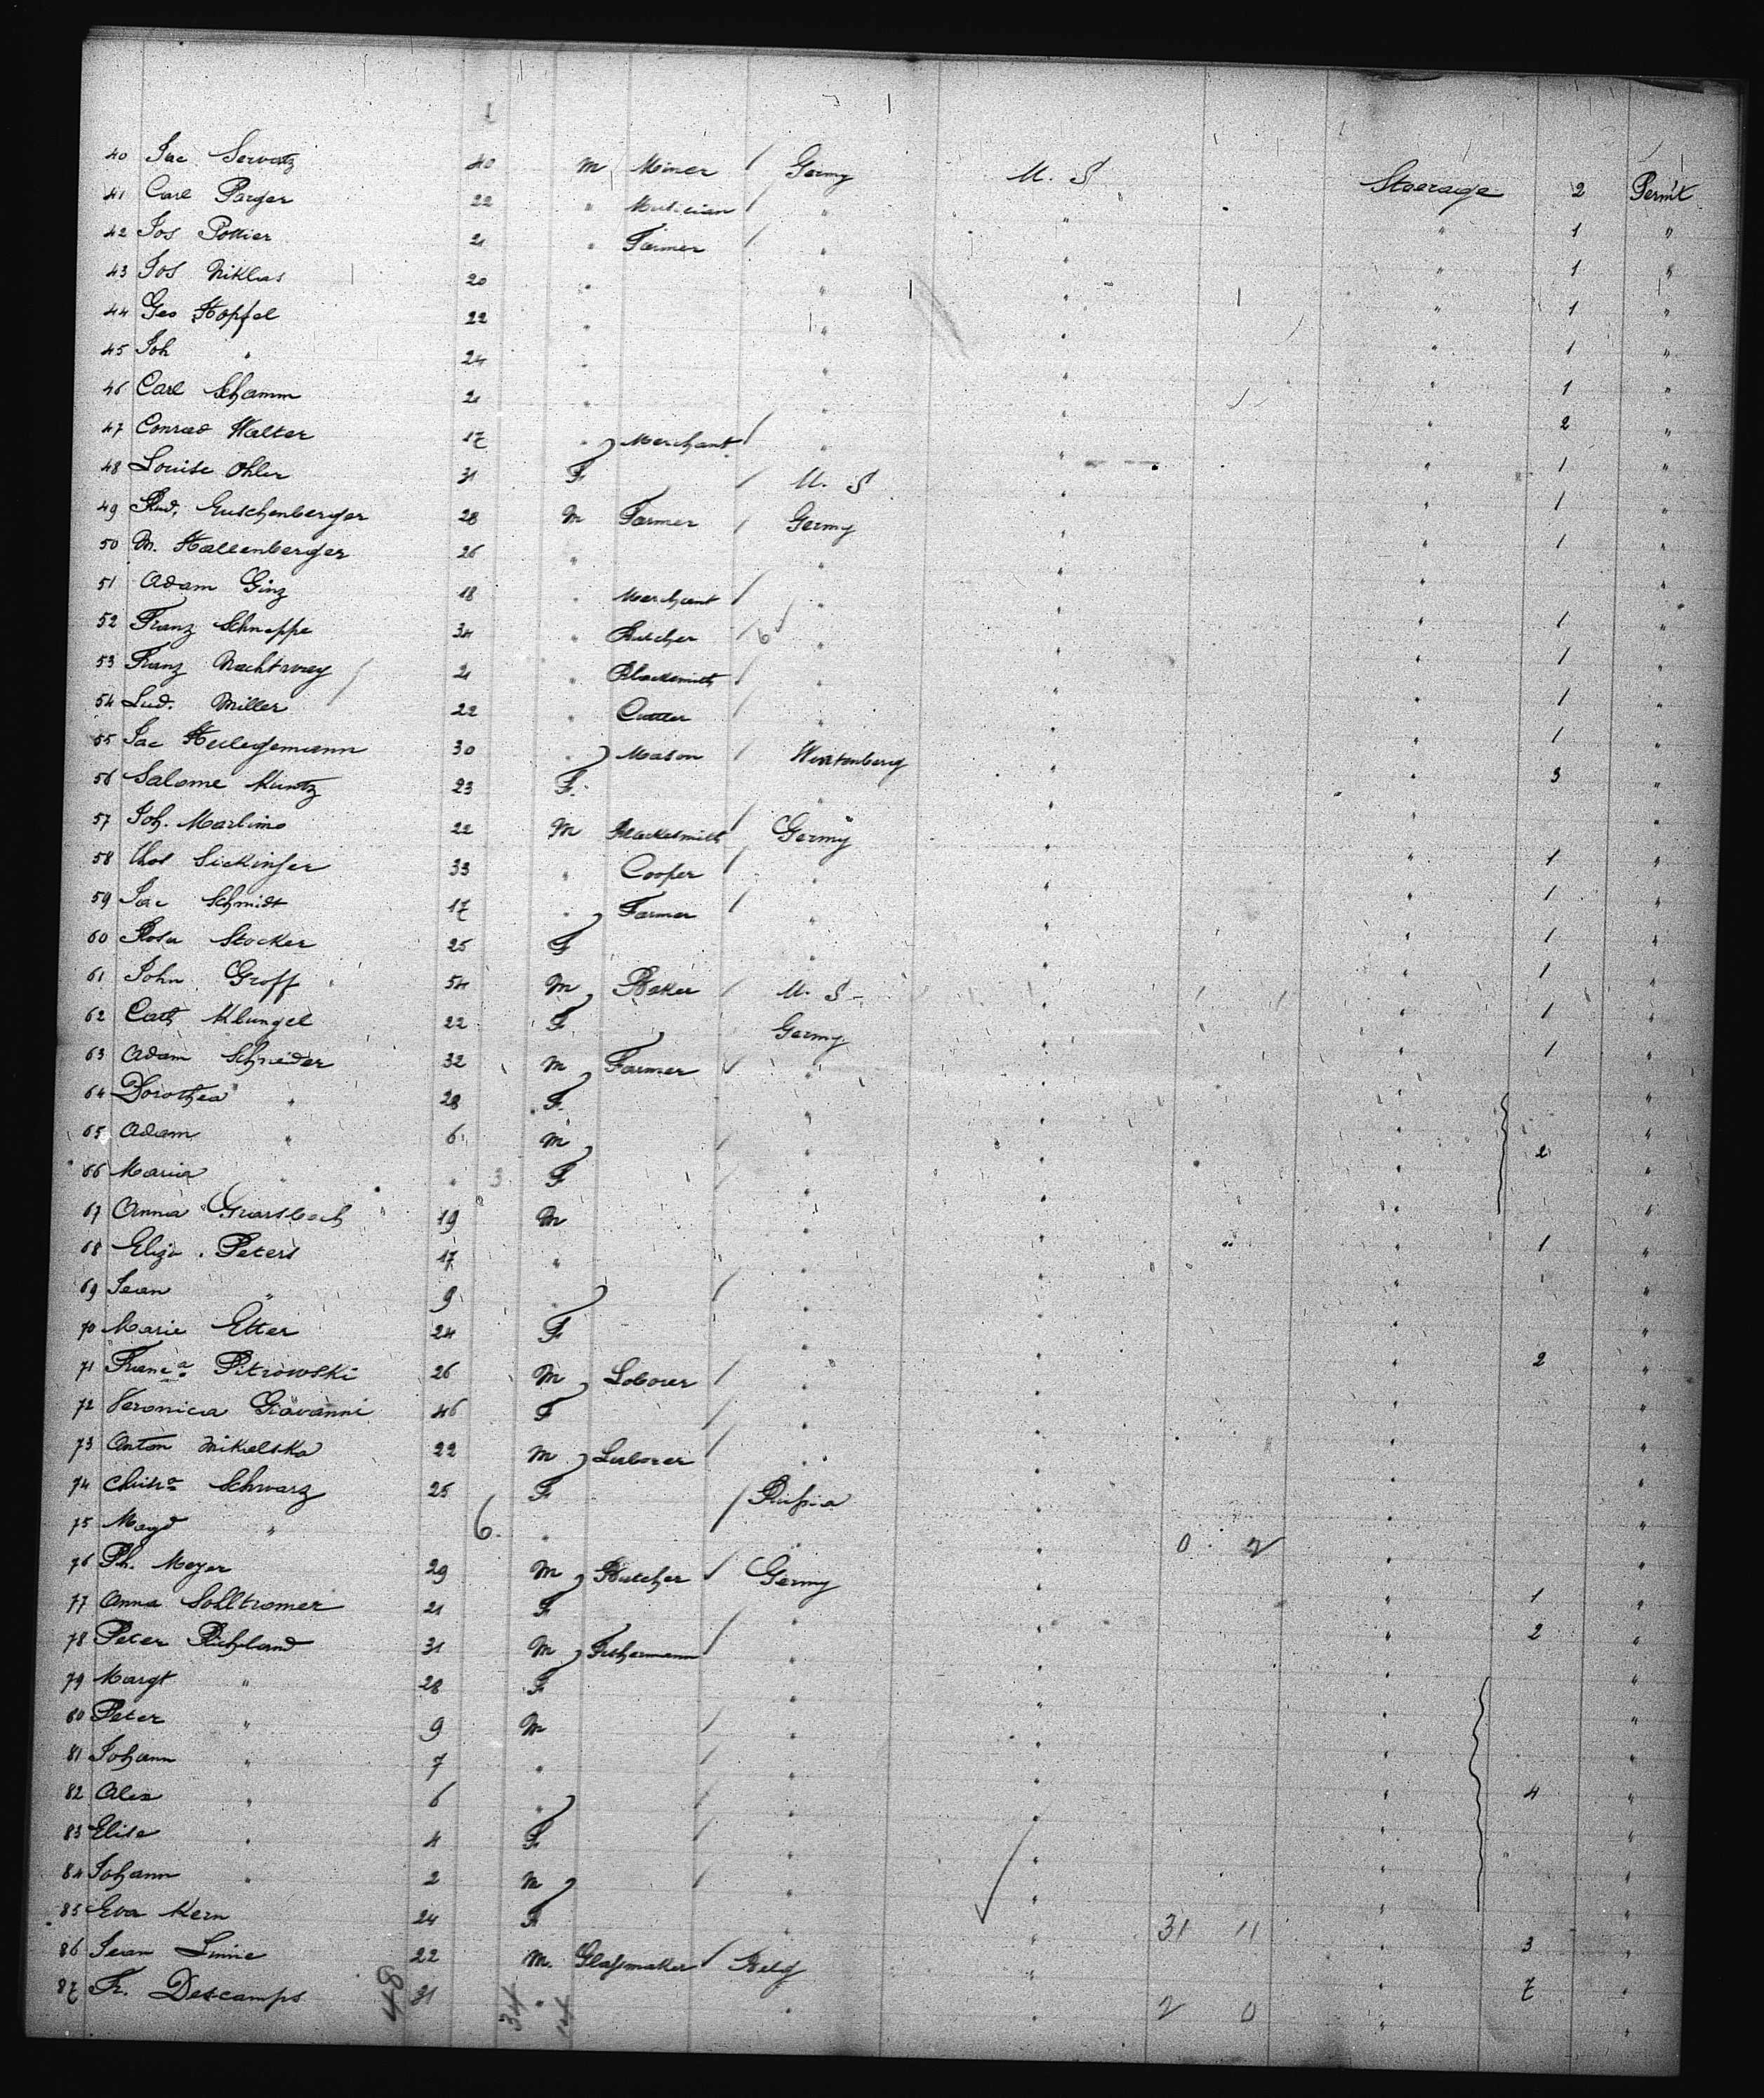 40 Jac Servatz 40 m Miner / Germy U. S Steerage 2 Perm't
41 Carl Parger 22 " Musician / " " " 1 "
42 Jos Pottier 21 " Farmer / " " " 1 "
43 Jos Niklas 20 " " " " 1 "
44 Geo Hopfel 22 " " " " 1 "
45 Joh " 24 " " " " 1 "
46 Carl Schamm 21 " " " " 2 "
47 Conrad Walter 17 " Merchant / " " " 1 "
48 Louise Ohler 31 F / U. S " " 1 "
49 Rud. Euschenberger 28 m Farmer / Germy " " 1 "
50 M. Hallenberger 26 " " " "
51 Adam Ginz 18 " Merchant / " " " 1 "
52 Franz Schneppe 34 " Butcher / " " " 1 "
53 Franz Nachtwey 21 " Blacksmith / " " " 1 "
54 Lud. Miller 22 " Cutler / " " " 1 "
55 Jac Heilegemann 30 " Mason / Wirtenberg " " 3 "
56 Salome Kuntz 23 F. " " "
57 Joh. Marlino 22 M Blacksmith / Germy " " 1 "
58 Thos Sickinger 33 " Cooper / " " " 1 "
59 Jac Schmidt 17 " Farmer / " " " 1 "
60 Rosa Stocker 25 F " " 1 "
61 John Groff 54 m Baker / U. S - " " 1 "
62 Cath Klungel 22 F Germy " " 1 "
63 Adam Schneider 32 m Farmer / " " " "
64 Dorothea " 28 F. " " " "
65 Adam " 6 m / " " " 2 "
66 Maria " " 3 F / " " " "
67 Anna Grarsbach 19 m " " " 1 "
68 Eliza. Peters 17 " " " " "
69 Jean " 9 " / " " " "
70 Marie Etter 24 F " " " 2 "
71 Franca Pitrowski 26 m Laborer / " " " "
72 Veronica Giovanni 46 F / " " " "
73 Anton Mikelska 22 m Laborer / " " " "
74 Christa Schwarz 25 F / Russia " " "
75 Magd " 6 " " " 0 2 " "
76 Ph. Meyer 29 m Butcher / Germy " " 1 "
77 Anna Solltromer 21 F / " " " 2 "
78 Peter Richland 31 m Fishermann / " " " "
79 Margt " 28 F " " " "
80 Peter " 9 m / " " " "
81 Johann " 7 " / " " " "
82 Alex " 6 " / " " " 4 "
83 Elise " 4 F / " " " "
84 Johann " 2 m / " " " "
85 Eva Kern 24 F " " 31 11 " 3 "
86 Jean Linie 22 m. Glassmaker / Belg " " 7 "
87 Fr. Descamps 31 " " " 2 0 " "
48 34 14